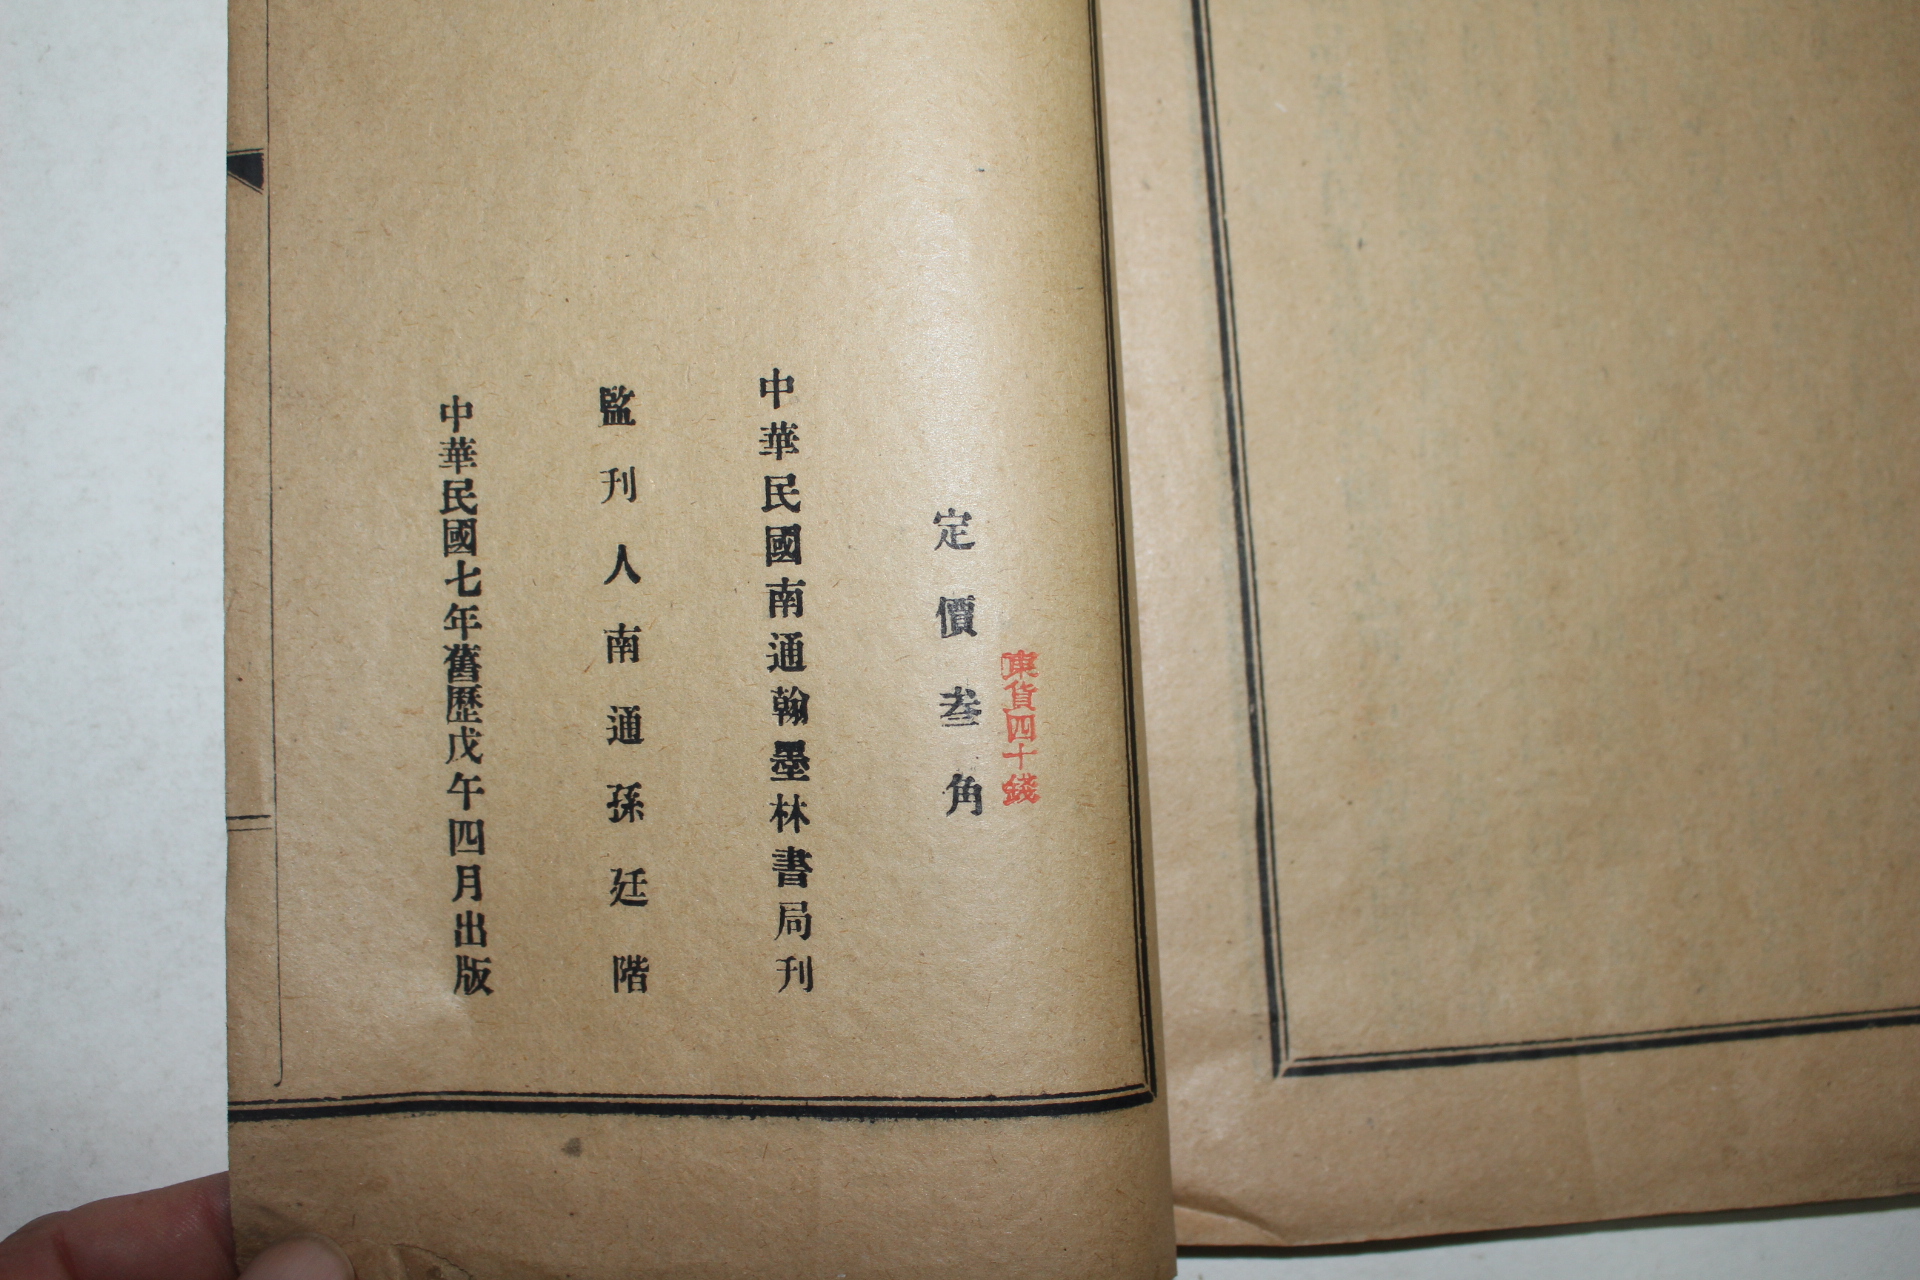 東貨四十錢
定價叁角
中華民國南通翰墨林書局刊
監刊人南通孫廷階
中華民國七年舊歷戊午四月出版